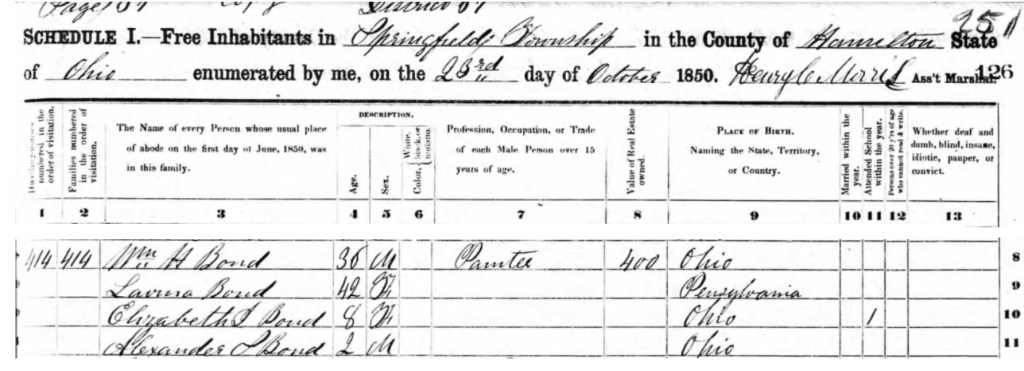 Page 67 Copy District 61
251
SCHEDULE I.—Free Inhabitants in Springfield Township in the County of Hamilton State
of Ohio enumerated by me, on the 23rd day of October 1850. Henry C Morris Ass't Marshal. 126
Dwelling-houses numbered in the order of visitation.
Families numbered in the order of visitation.
The Name of every Person whose usual place
of abode on the first day of June, 1850, was
in this family.
DESCRIPTION.
Age.
Sex.
Color, White, black, or mulatto.
Profession, Occupation, or Trade
of each Male Person over 15
years of age.
Value of Real Estate owned.
PLACE OF BIRTH.
Naming the State, Territory,
or Country.
Married within the year.
Attended School within the year.
Persons over 20 y'rs of age who cannot read & write.
Whether deaf and
dumb, blind, insane,
idiotic, pauper, or
convict.
1 2 3 4 5 6 7 8 9 10 11 12 13
414 414 Wm H Bond 36 M Painter 400 Ohio 8
Lavina Bond 42 F Pensylvania 9
Elizabeth S Bond 8 F Ohio 1 10
Alexander S Bond 2 M Ohio 11